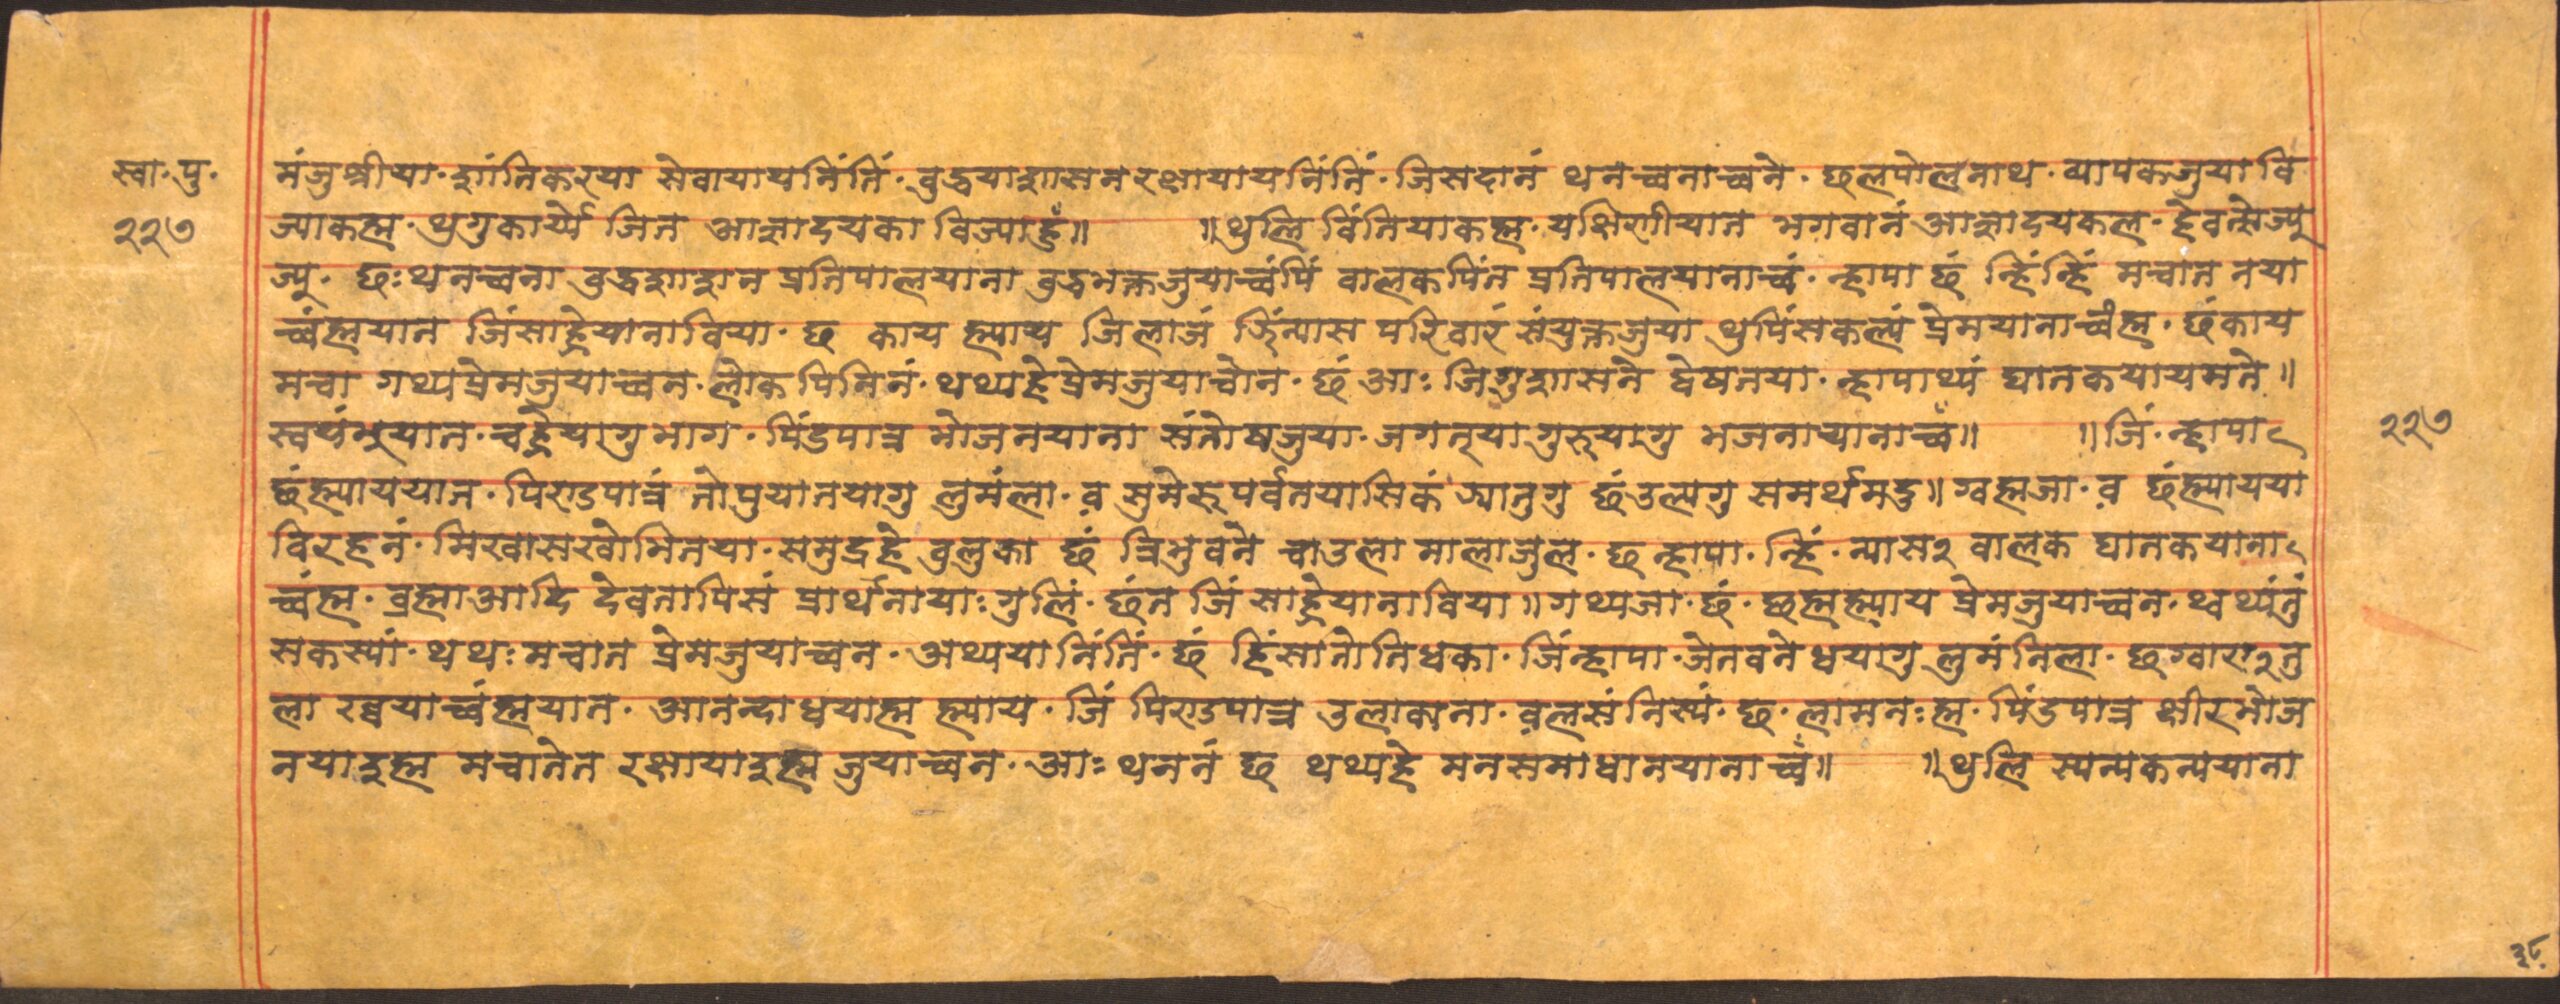 स्वा. पु.
२२७
मंजुश्रीया. शांतिकरया सेवायायनिंतिं. वुद्धयाशासन रक्षायायनिंतिं. जिसदानं थनच्वनाच्वने. छलपोलनाथ. व्यापकजुयावि
ज्याकह्म. थुगुकार्य्ये जित आज्ञादयका विज्याहुँ॥ ॥थुलि विंतियाकह्म. यक्षिणीयात भगवानं आज्ञादयकल. हेवत्सेज्यु
ज्यु. छः थनच्वना वुद्धशाशन प्रतिपालयाना वुद्धभक्तजुयाच्वंपिं वालकपिंत प्रतिपालयानाच्वं. न्हापा छं न्हिंन्हिं मचात नया
च्वंह्मयात जिंसाह्रेयानाविया. छ काय ह्म्याय जिलाजं ञिंन्यास परिवारं संयुक्तजुया थुपिंसकल्यं प्रेमयानाच्वंह्म. छंकाय
मचा गथ्यप्रेमजुयाच्वन. लोकपिनिनं. थथ्यहेप्रेमजुयाचोन. छं आः जिगुशासने द्वेषनया. न्हापाथ्यं घातकयायमते॥
स्वयंभुयात. चह्रेयागुभाग. पिंडपात्र भोजनयाना संतोषजुया. जगत्या गुरुयागु भजनायानाच्वँ॥ ॥जिं. न्हापा
छंह्म्याययात. पिण्डपात्रं तोपुयातयागु लुमंला. व सुमेरुपर्वतयासिकं ञ्यातुगु छंउलागु समर्थमदु॥ ग्वह्मजा. व छंह्म्यायया
विरहनं. मिखासखोभितया. समुद्रहे वुलुका छं त्रिभुवने चाउला मालाजुल. छ न्हापा. न्हिं. न्यास२ वालक घातकयाना
च्वंह्म. व्रह्माआदि देवतापिसं प्रार्थनायाः गुलिं. छंत जिं साह्रेयानाविया॥ गथ्यजा. छं. छह्मह्म्याय प्रेमजुयाच्वन. थ्वथ्यंतुं
सकस्यां. थथः मचात प्रेमजुयाच्वन. अथ्ययानिंतिं. छं हिंसातोतिधका. जिंन्हापा. जेतवने धयागु लुमंनिला. छग्वारातु
ला रछ्यवयाच्वंह्मयात. आनन्दाधयाह्म ह्म्याय. जिं पिण्डपात्र उलाकाना. वलसंनिस्यं. छ. लामनःह्म. पिंडपात्र क्षीरभोज
नयाइह्म मचातेत रक्षायाइह्म जुयाच्वन. आः थननं छ थथ्यहे मनसमाधानयानाच्वँ॥ ॥थुलि स्यन्यकन्ययाना
२२७
३८